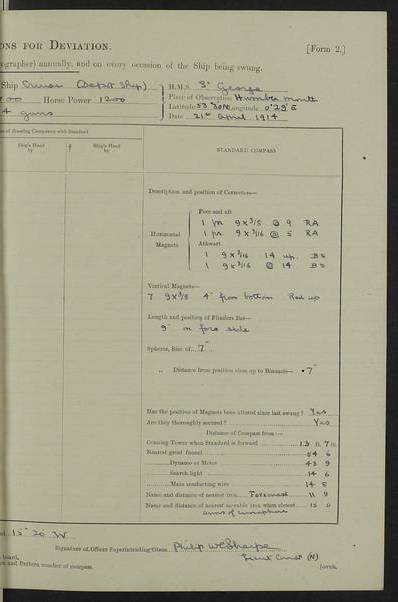 ONS FOR DEVIATION.
[Form 2.]
ographer) annually, and on every occasion of the Ship being swung.
Ship Cruiser (Depot Ship)
H.M.S. St George
Horse Power 1200
Place of Observation Humber mouth
4 guns
Latitude 53°30'N Longitude 0°29'E
Date 21st April 1914
of Steering Compasses with Standard
Ship's Head by
Ship's Head by
STANDARD COMPASS
Description and position of Correctors—
Horizontal Magnets
Fore and aft
1 pr 9 x 3/8 @ 9 RA
1 pr 9 x 3/16 @ 5 RA
Athwart
1 9 x 3/16 14 up. BS
1 9 x 3/16 @ 14 BS
Vertical Magnets—
7 9 x 3/8 4" from bottom Red up
Length and position of Flinders Bar—
9" on fore side
Spheres, Size of... 7"
„ Distance from position close up to Binnacle— 7"
Has the position of Magnets been altered since last swung? Yes
Are they thoroughly secured? Yes
Distance of Compass from:—
Conning Tower when Standard is forward 13 ft. 7 in.
Nearest great funnel 54 6
Dynamo or Motor 43 9
Search light 14 6
Main conducting wire 14 8
Name and distance of nearest iron Foremast 11 9
Name and distance of nearest movable iron when closest 15 0
arms of semaphore
15° 20' W
Signature of Officer Superintending Obsns. Philip W E Sharpe
Lieut Comdr (N)
board.
and Pattern number of compass.
[OVER.